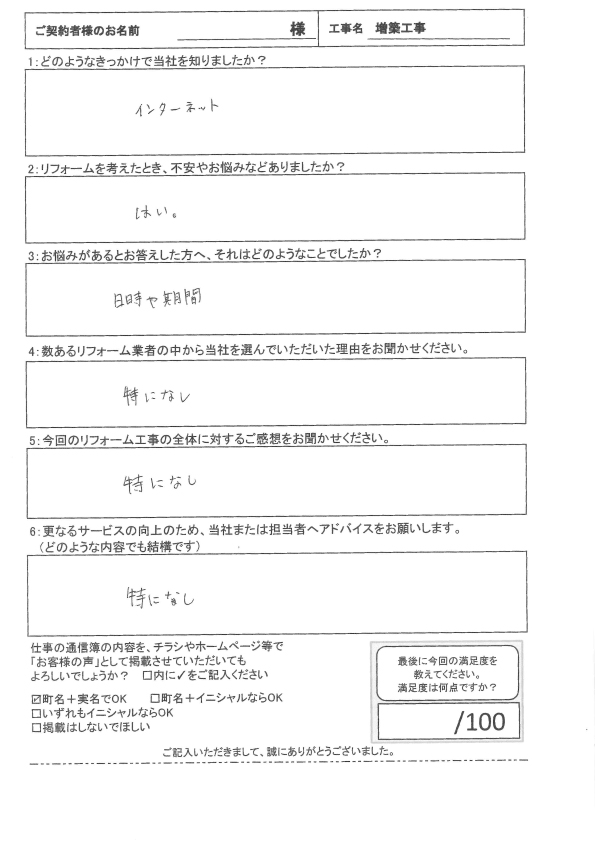 ご契約者様のお名前 様 工事名 増築工事
1:どのようなきっかけで当社を知りましたか？
インターネット
2:リフォームを考えたとき、不安やお悩みなどありましたか？
はい。
3:お悩みがあるとお答えした方へ、それはどのようなことでしたか？
日時や期間
4:数あるリフォーム業者の中から当社を選んでいただいた理由をお聞かせください。
特になし
5:今回のリフォーム工事の全体に対するご感想をお聞かせください。
特になし
6:更なるサービスの向上のため、当社または担当者へアドバイスをお願いします。
（どのような内容でも結構です）
特になし
仕事の通信簿の内容を、チラシやホームページ等で
「お客様の声」として掲載させていただいても
よろしいでしょうか？ □内に✓をご記入ください
☑町名＋実名でOK □町名＋イニシャルならOK
□いずれもイニシャルならOK
□掲載はしないでほしい
最後に今回の満足度を
教えてください。
満足度は何点ですか？
/100
ご記入いただきまして、誠にありがとうございました。